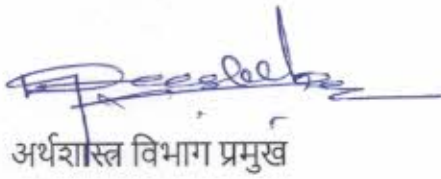 अर्थशास्त्र विभाग प्रमुख